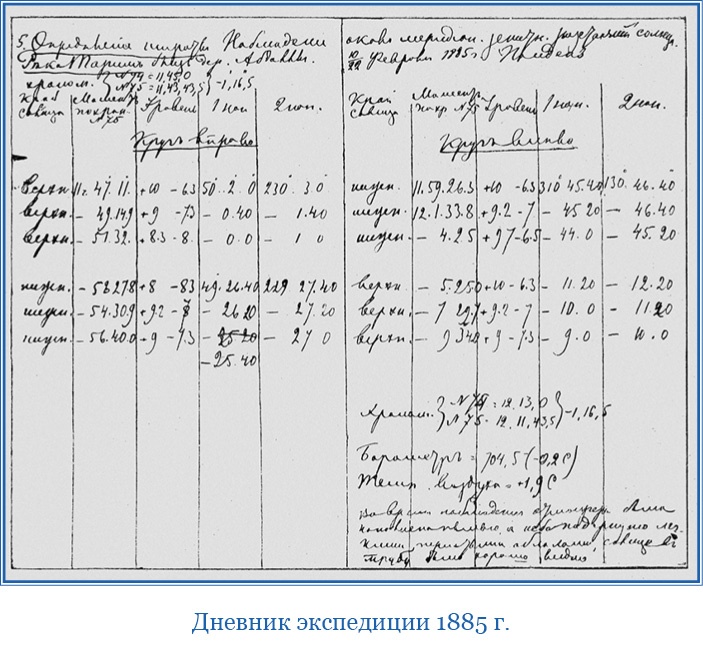 5. Определенiе широты Наблюдени
Рѣка Таримъ близъ дер. Абдаллы.
хроном. } N 74 = 11,45,0 } -1,16,5
N 75 = 11,43,43,5
Край солнца Моментъ по хрон. N 75 Уровень 1 нон. 2 нон.
Кругъ вправо
верхн. 11. 47. 11. +10 -6.3 50. 2. 0 230. 3. 0
верхн. - 49.14,9 +9 -7.3 - 0.40 - 1.40
верхн. - 51.32. +8.3 -8. - 0.0 - 1 0
нижн. - 53 27,8 +8 -8.3 49. 26.40 229 27.40
нижн. - 54.30,9 +9.2 -7 - 26 20 - 27.20
нижн. - 56.40.0 +9 -7.3 - 25 20 - 27 0
- 25.40
около меридiан. зенитн. разстоянiй солнца.
10/22 Февраля 1885 г. Полдень
Край солнца Моментъ по хр N 75 Уровень 1 нон. 2 нон.
Кругъ влѣво
нижн. 11. 59. 26.3 +10 -6.3 310 45.40 130. 46.40
нижн. 12. 1. 33.8 +9.2 -7 - 45 20 - 46.40
нижн. - 4.2.5 +9.7 -6.5 - 44.0 - 45.20
верхн. - 5.25.0 +10 -6.3 - 11.20 - 12.20
верхн. - 7 29.7 +9.2 -7 - 10.0 - 11 20
верхн. - 9 34.0 +9 -7.3 - 9.0 - 10.0
Хроном. } N 74 = 12.13,0 } -1,16,5
N 75 - 12.11,43,5
Барометръ = 704,5 (-0,2 C)
Темп. воздуха = +1,9 C
Во время наблюденiя
облаками, солнце въ
трубу было хорошо видно
Дневник экспедиции 1885 г.